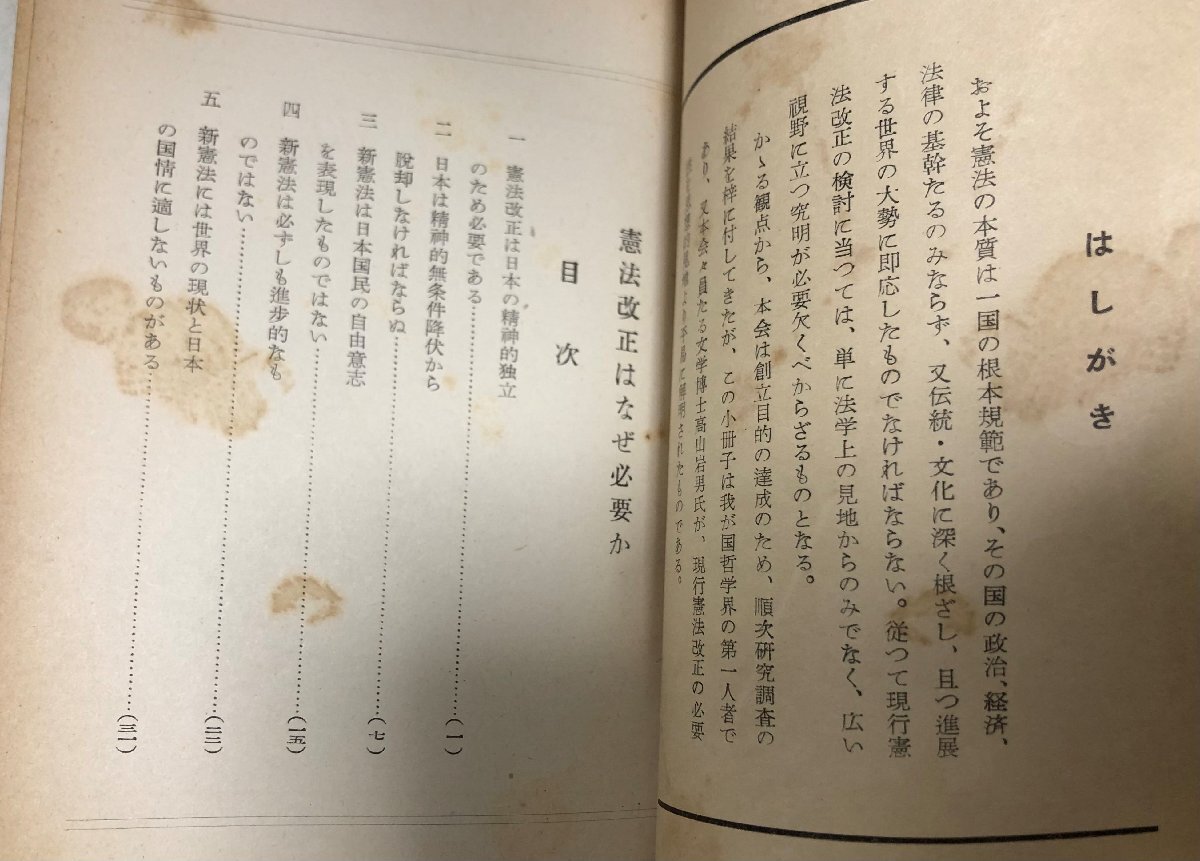 はしがき
およそ憲法の本質は一国の根本規範であり、その国の政治、経済、
法律の基幹たるのみならず、又伝統・文化に深く根ざし、且つ進展
する世界の大勢に即応したものでなければならない。従つて現行憲
法改正の検討に当つては、単に法学上の見地からのみでなく、広い
視野に立つ究明が必要欠くべからざるものとなる。
かゝる観点から、本会は創立目的の達成のため、順次研究調査の
結果を梓に付してきたが、この小冊子は我が国哲学界の第一人者で
あり、又本会々員たる文学博士高山岩男氏が、現行憲法改正の必要
より平易に解明されたものである。
憲法改正はなぜ必要か
目次
一 憲法改正は日本の精神的独立
のため必要である……………………(一)
二 日本は精神的無条件降伏から
脱却しなければならぬ……………………(七)
三 新憲法は日本国民の自由意志
を表現したものではない……………………(一五)
四 新憲法は必ずしも進歩的なも
のではない……………………(二三)
五 新憲法には世界の現状と日本
の国情に適しないものがある……………………(三一)